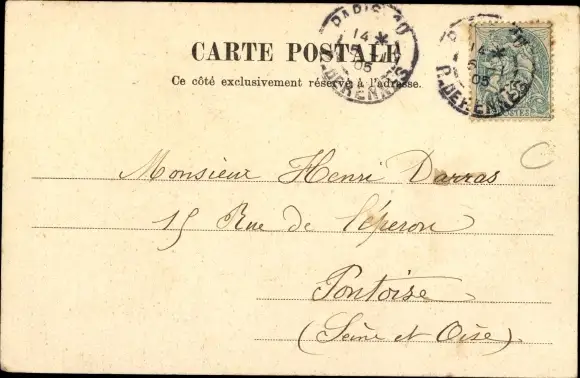 CARTE POSTALE
Ce côté exclusivement réservé à l'adresse.
PARIS
14
05
R. DE RENNES
PARIS
14
05
R. DE RENNES
POSTES
Monsieur Henri Darras
15 Rue de l'éperon
Pontoise
(Seine et Oise)